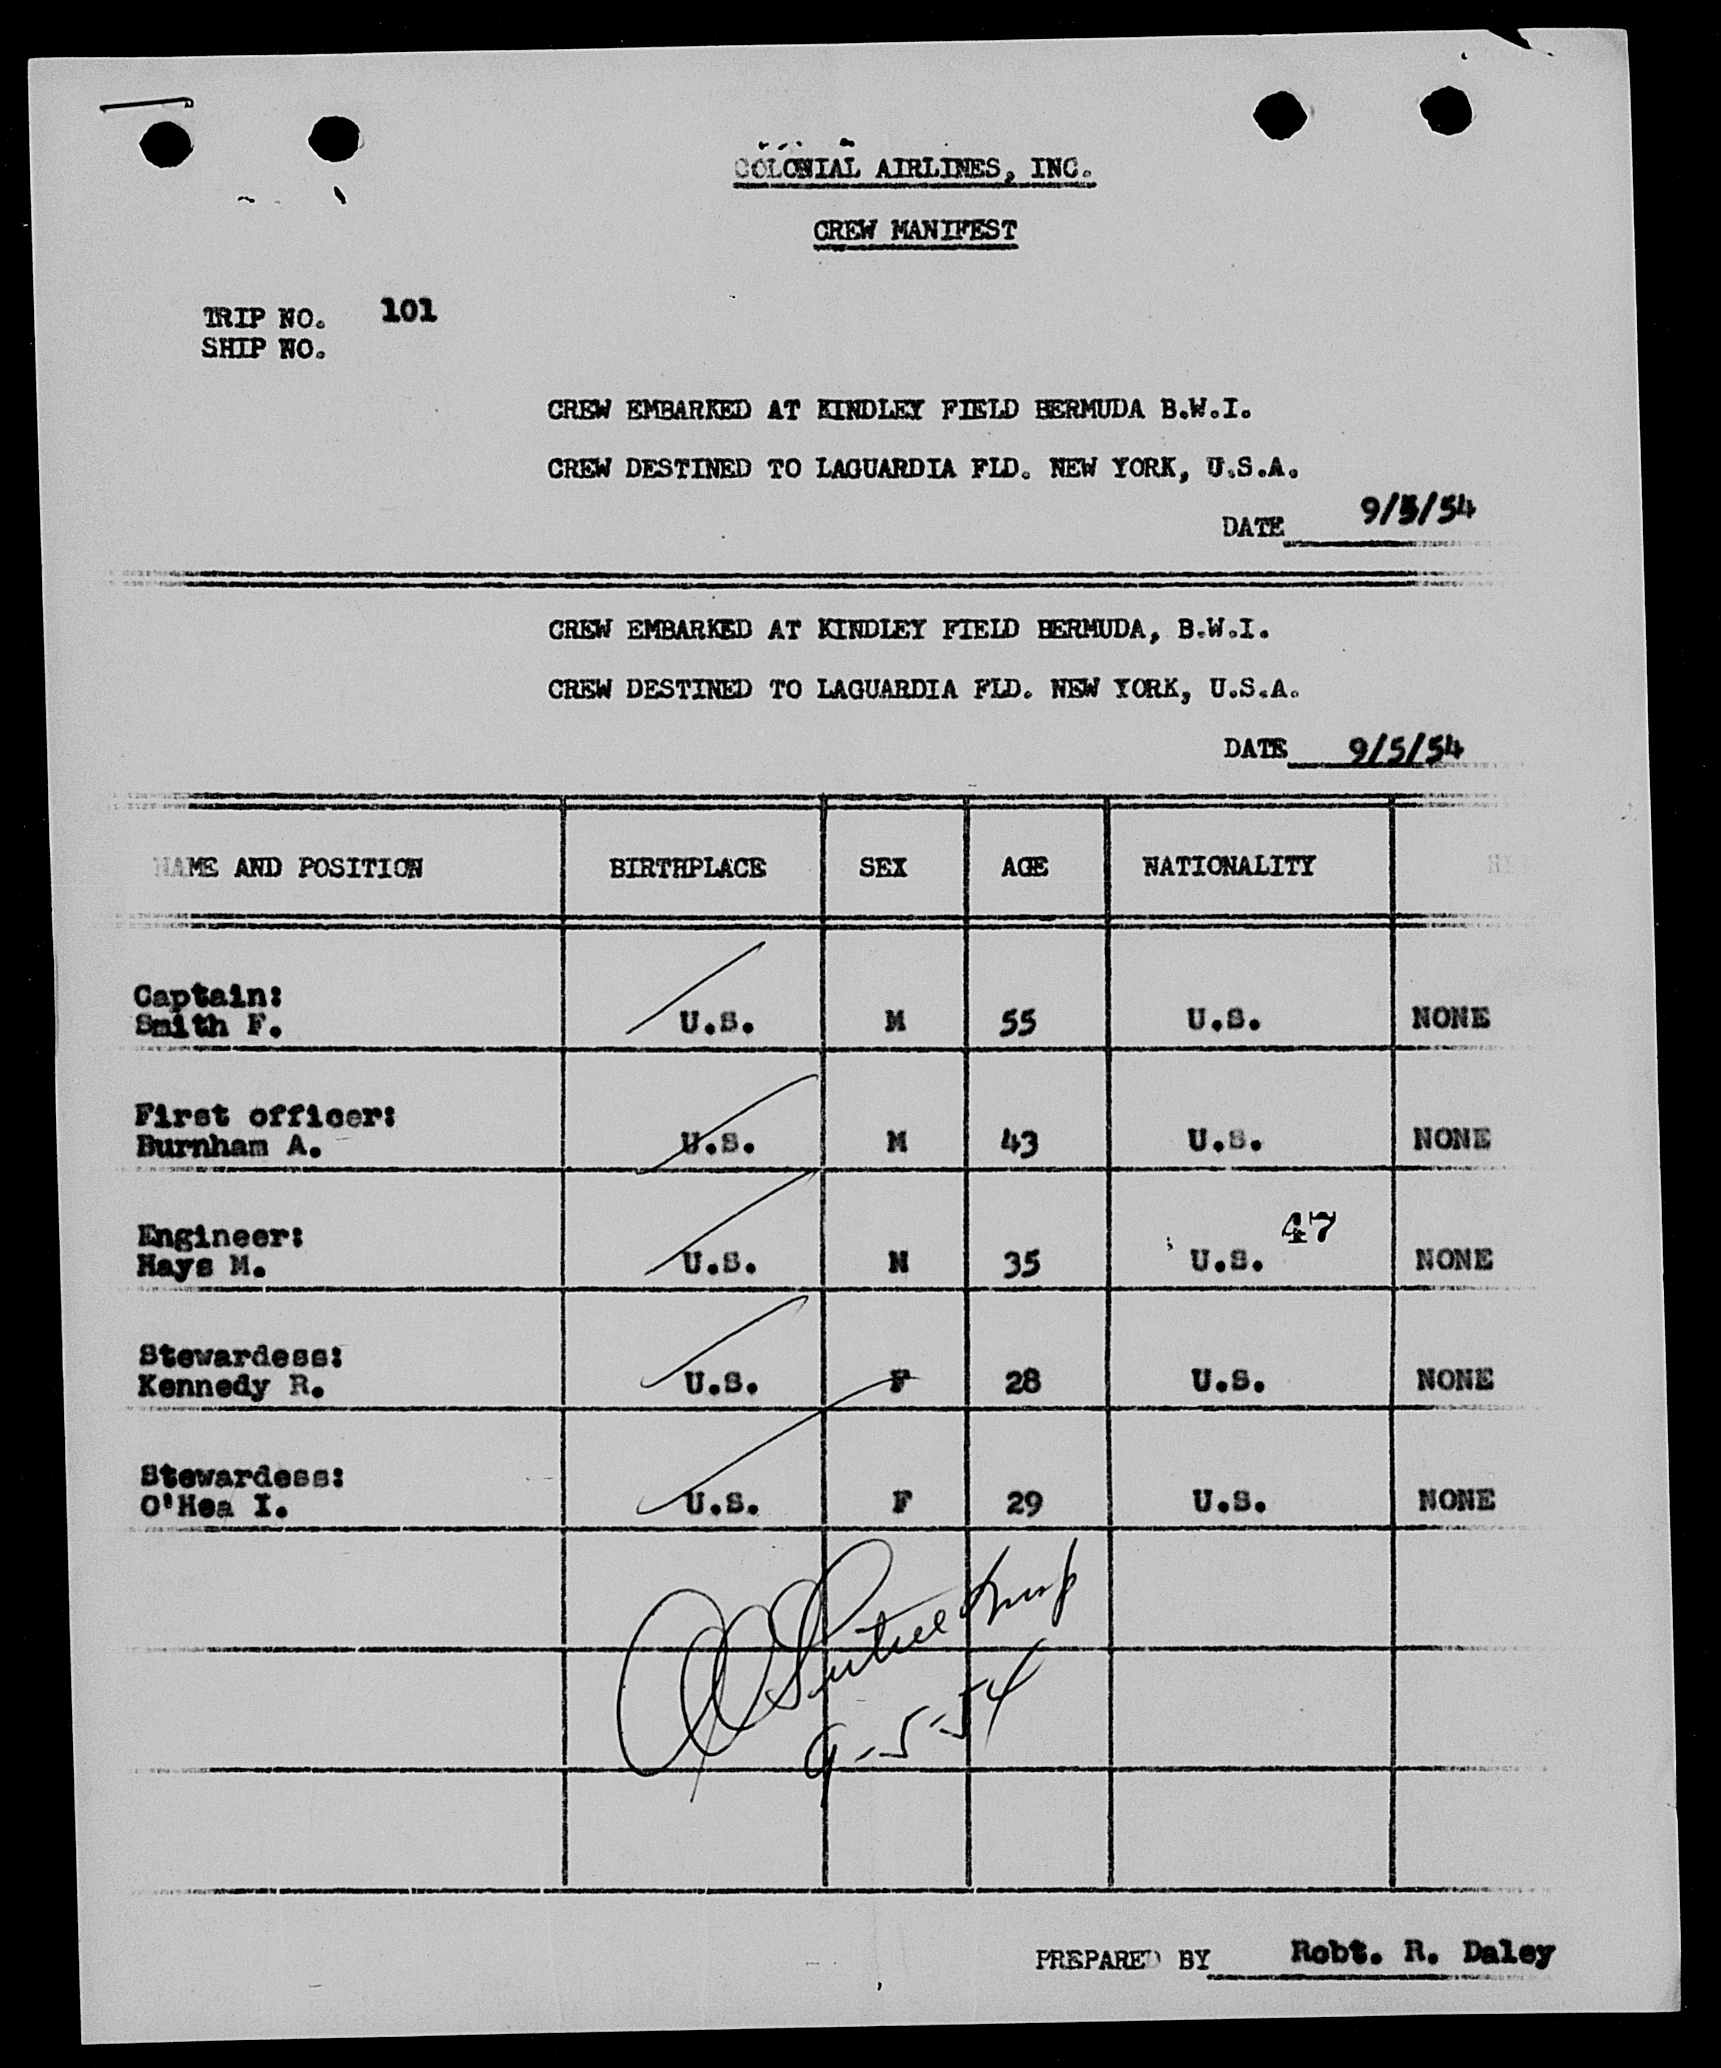 COLONIAL AIRLINES, INC.
CREW MANIFEST
TRIP NO. 101
SHIP NO.
CREW EMBARKED AT KINDLEY FIELD BERMUDA B.W.I.
CREW DESTINED TO LAGUARDIA FLD. NEW YORK, U.S.A.
DATE 9/5/54
CREW EMBARKED AT KINDLEY FIELD BERMUDA, B.W.I.
CREW DESTINED TO LAGUARDIA FLD. NEW YORK, U.S.A.
DATE 9/5/54
NAME AND POSITION BIRTHPLACE SEX AGE NATIONALITY
Captain:
Smith F. U.S. M 55 U.S. NONE
First officer:
Burnham A. U.S. M 43 U.S. NONE
47
Engineer:
Hays M. U.S. M 35 U.S. NONE
Stewardess:
Kennedy R. U.S. F 28 U.S. NONE
Stewardess:
O'Hea I. U.S. F 29 U.S. NONE
9-5-54
PREPARED BY Robt. R. Daley